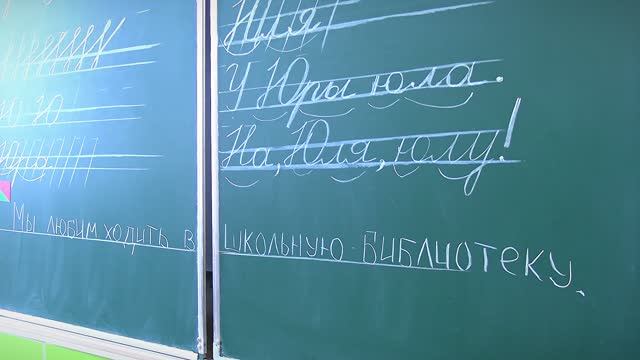 ю Ю
Юля
У Юры юла.
На, Юля, юлу!
Мы любим ходить в школьную библиотеку.